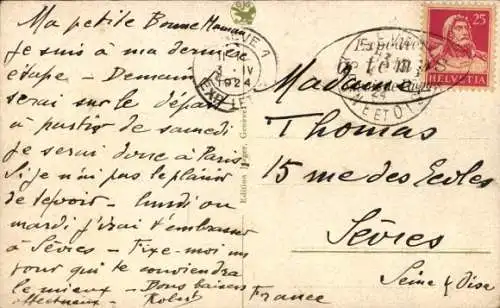 Ma petite Bonne Maman
je suis à ma dernière
étape - Demain
serai sur le départ
à partir de samedi
je serai donc à Paris
Si je n'ai pas le plaisir
de te voir - lundi ou
mardi j'irai t'embrasser
à Sèvres - Fixe-moi un
jour qui te conviendra
le mieux - Bons baisers
affectueux Robert
Edition Jaeger, Genève
1924
Madame
Thomas
15 rue des Ecoles
Sèvres
Seine & Oise
France
25
HELVETIA